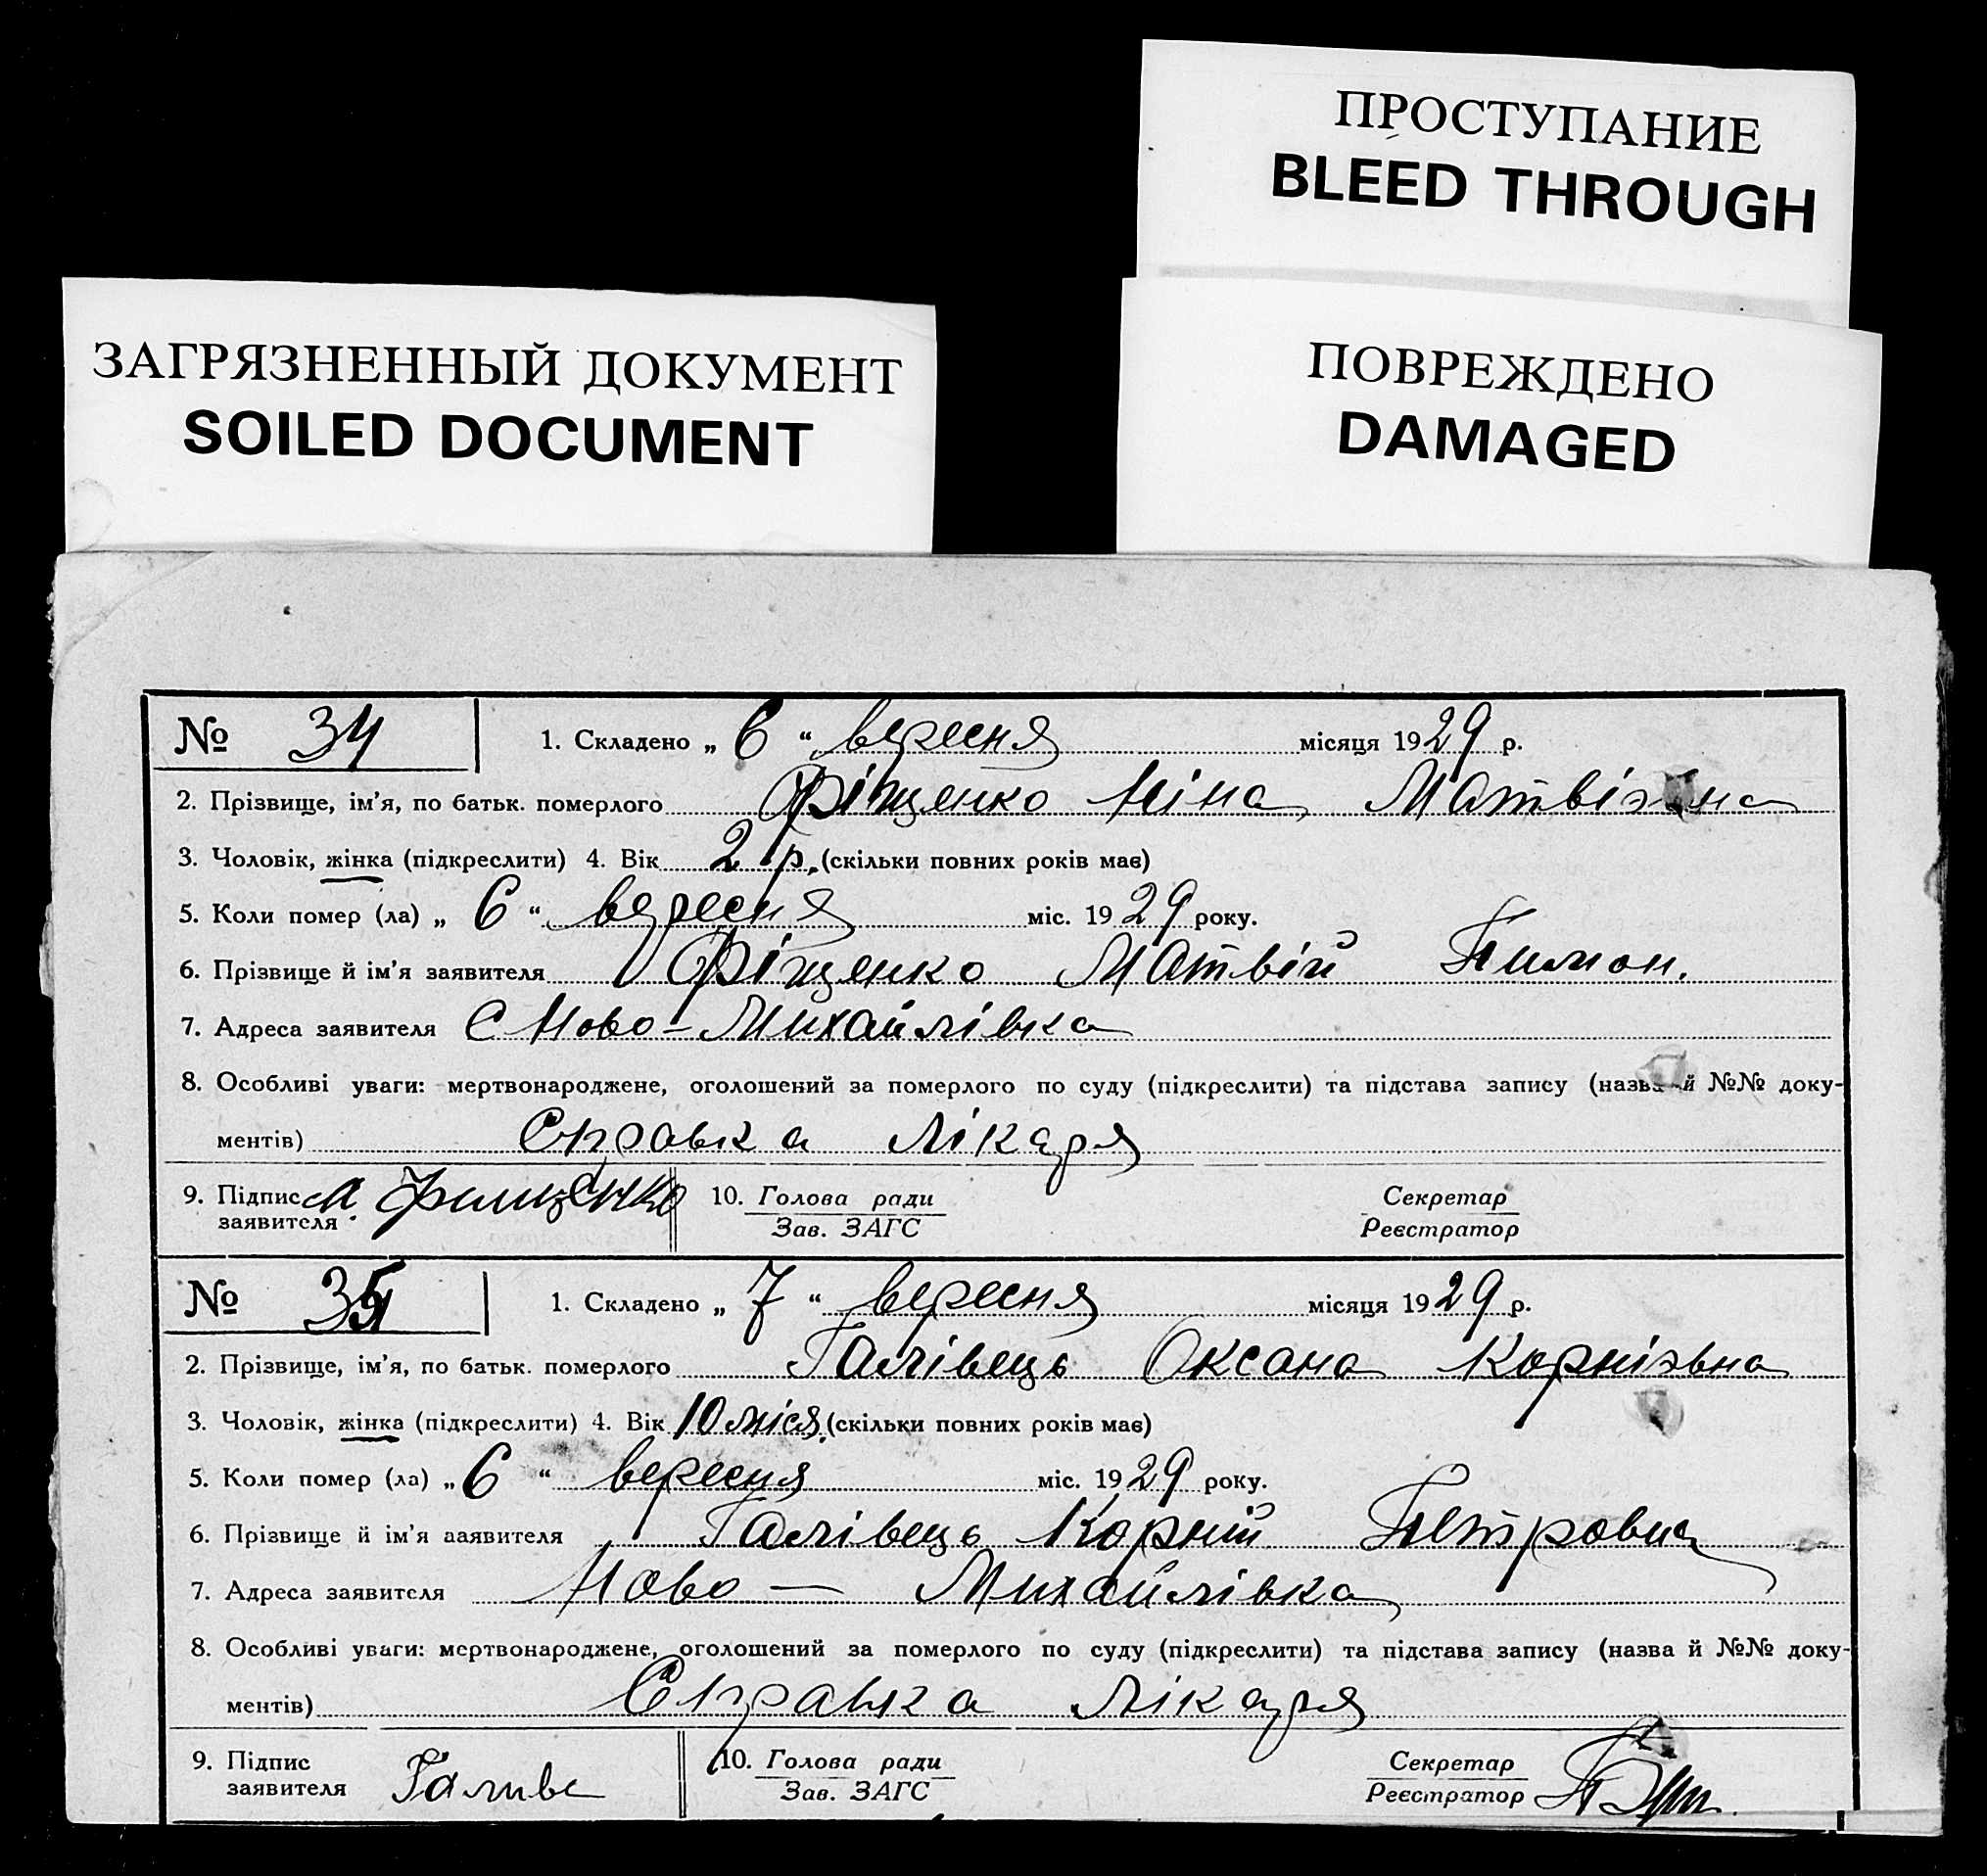 ПРОСТУПАНИЕ
BLEED THROUGH
ЗАГРЯЗНЕННЫЙ ДОКУМЕНТ
SOILED DOCUMENT
ПОВРЕЖДЕНО
DAMAGED
№ 34 1. Складено „ 6 “ вересня місяця 1929 р.
2. Прізвище, ім'я, по батьк. померлого Фіщенко Ніна Матвієвна
3. Чоловік, жінка (підкреслити) 4. Вік 2 р. (скільки повних років має)
5. Коли помер (ла) „ 6 “ вересня міс. 1929 року.
6. Прізвище й ім'я заявителя Фіщенко Матвій Пимон.
7. Адреса заявителя с Ново-Михайлівка
8. Особливі уваги: мертвонароджене, оголошений за померлого по суду (підкреслити) та підстава запису (назва й №№ доку-
ментів) Справка лікаря
9. Підпис М. Фищенко 10. Голова ради Секретар
заявителя Зав. ЗАГС Реєстратор
№ 35 1. Складено „ 7 “ вересня місяця 1929 р.
2. Прізвище, ім'я, по батьк. померлого Галівець Оксана Корнієвна
3. Чоловік, жінка (підкреслити) 4. Вік 10 міся. (скільки повних років має)
5. Коли помер (ла) „ 6 “ вересня міс. 1929 року.
6. Прізвище й ім'я заявителя Галівець Корній Петрович
7. Адреса заявителя Ново — Михайлівка
8. Особливі уваги: мертвонароджене, оголошений за померлого по суду (підкреслити) та підстава запису (назва й №№ доку-
ментів) Справка лікаря
9. Підпис Галиве 10. Голова ради Секретар
заявителя Зав. ЗАГС Реєстратор